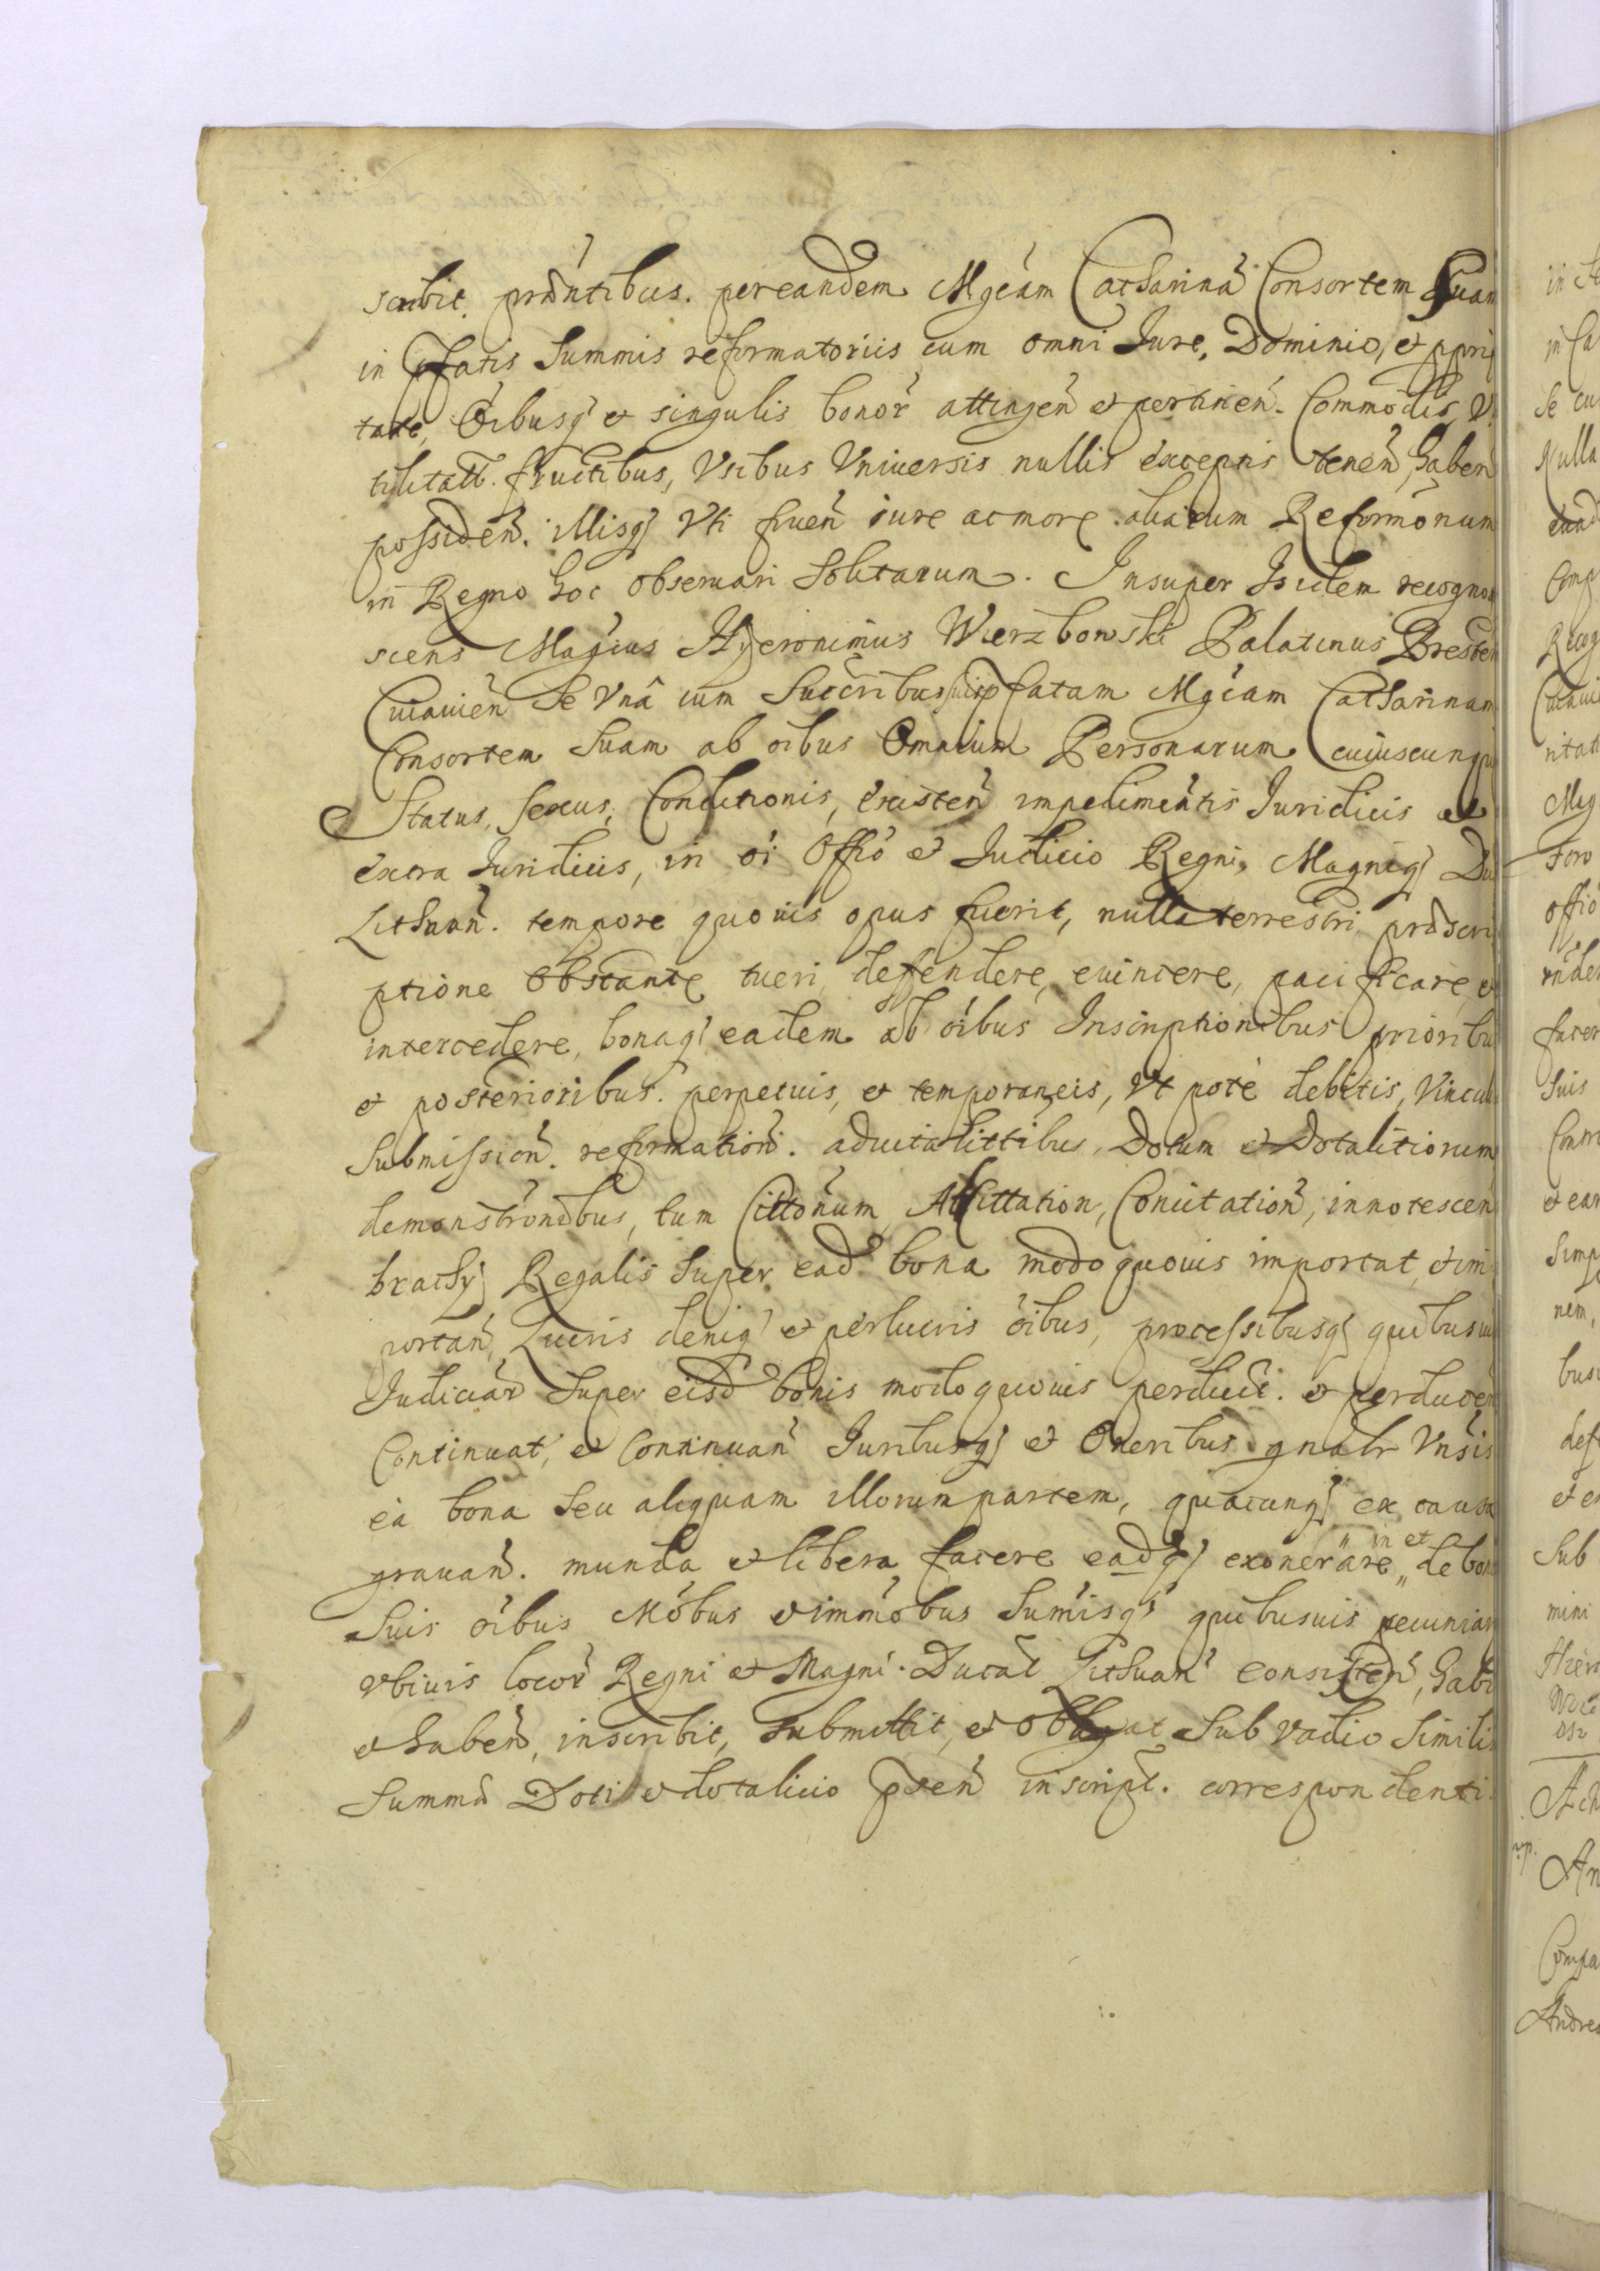 scribit. prñtibus. per eandem Mgcam Catharinã Consortem Suam
in pfatis Summis reformatoriis cum omni Iure, Dominio, et ppri
tate, Oibusq et singulis bonor attingeñ et pertineñ. Commodis, V
tilitatt. fructibus, Vsibus Vniuersis nullis exceptis teneñ, habeñ
possideñ. illisq Vti frueñ iure ac more aliarum Reformõnum
in Regno hoc obseruari Solitarum. Insuper Isidem recogno
scens Magcus Hyeronimus Wierzbowski Palatinus Bresteñ
Cuiauieñ Se Vnâ cum Succribus suis pfatam Mgcam Catharinam
Consortem Suam ab oibus Omnium Personarum cuiuscunque
Status, Sexus, Conditionis, existeñ impedimentis Iuridicis et
extra Iuridicis, in oi Offio et Iudicio Regni, Magniq Du
Lithuañ. tempore quouis opus fuerit, nulla terrestri præscri
ptione obstante tueri, defendere, euincere, pacificare, et
intercedere, bonaq eadem ab oibus Inscriptionibus prioribu
et posterioribus. perpetuis, et temporaneis, Vt pote debitis, Vincul
Submissioñ. reformatioñ. aduitalittibus, Dotum et Dotalitiorum
demonstrõnibus, tum Cittõnum, Attittation, Conictatioñ, innotesceñ
brachy Regalis Super ead bona modo quouis importat, et im
portañ, Lucris deniq et perlucris oibus, processibusq quibusuis
Iudiciar Super eisd bonis modo quouis perduct. et perduceñ
Continuat, et Continuañ Iuribusq et Oneribus gnalr Vnsis
ea bona Seu aliquam illorum partem, quacunq ex causa
grauañ. munda et libera facere eadq exonerare
in et
de bonis
Suis oibus Mobus et immobus Sumisq quibusuis pecuniar
vbiuis locor Regni et Magni Ducat Lithuañ consisteñ, habi
et habeñ, inscribit, submittit, et obligat Sub vadio Simili
Summæ Doti et dotalicio pseñ inscript. correspondenti